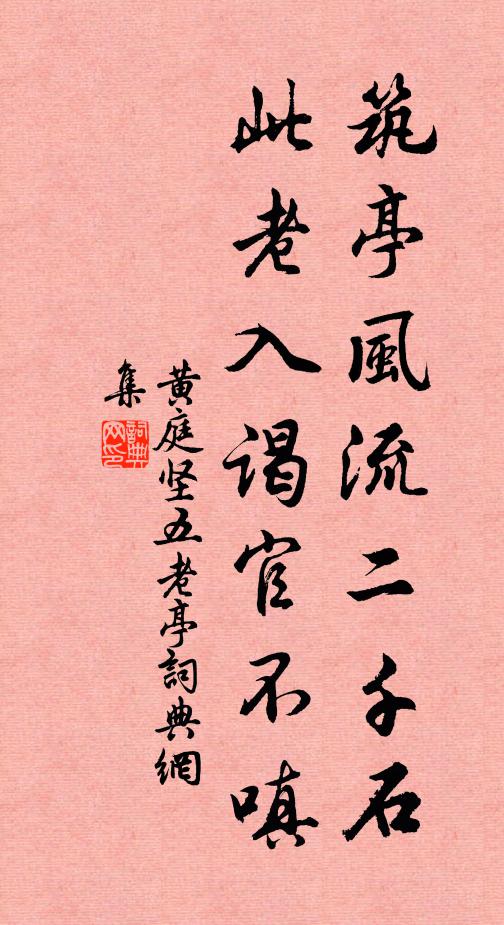 筑亭風流二千石
此老入谒官不嗔
黄庭坚五老亭詞典網
集
詞典网印